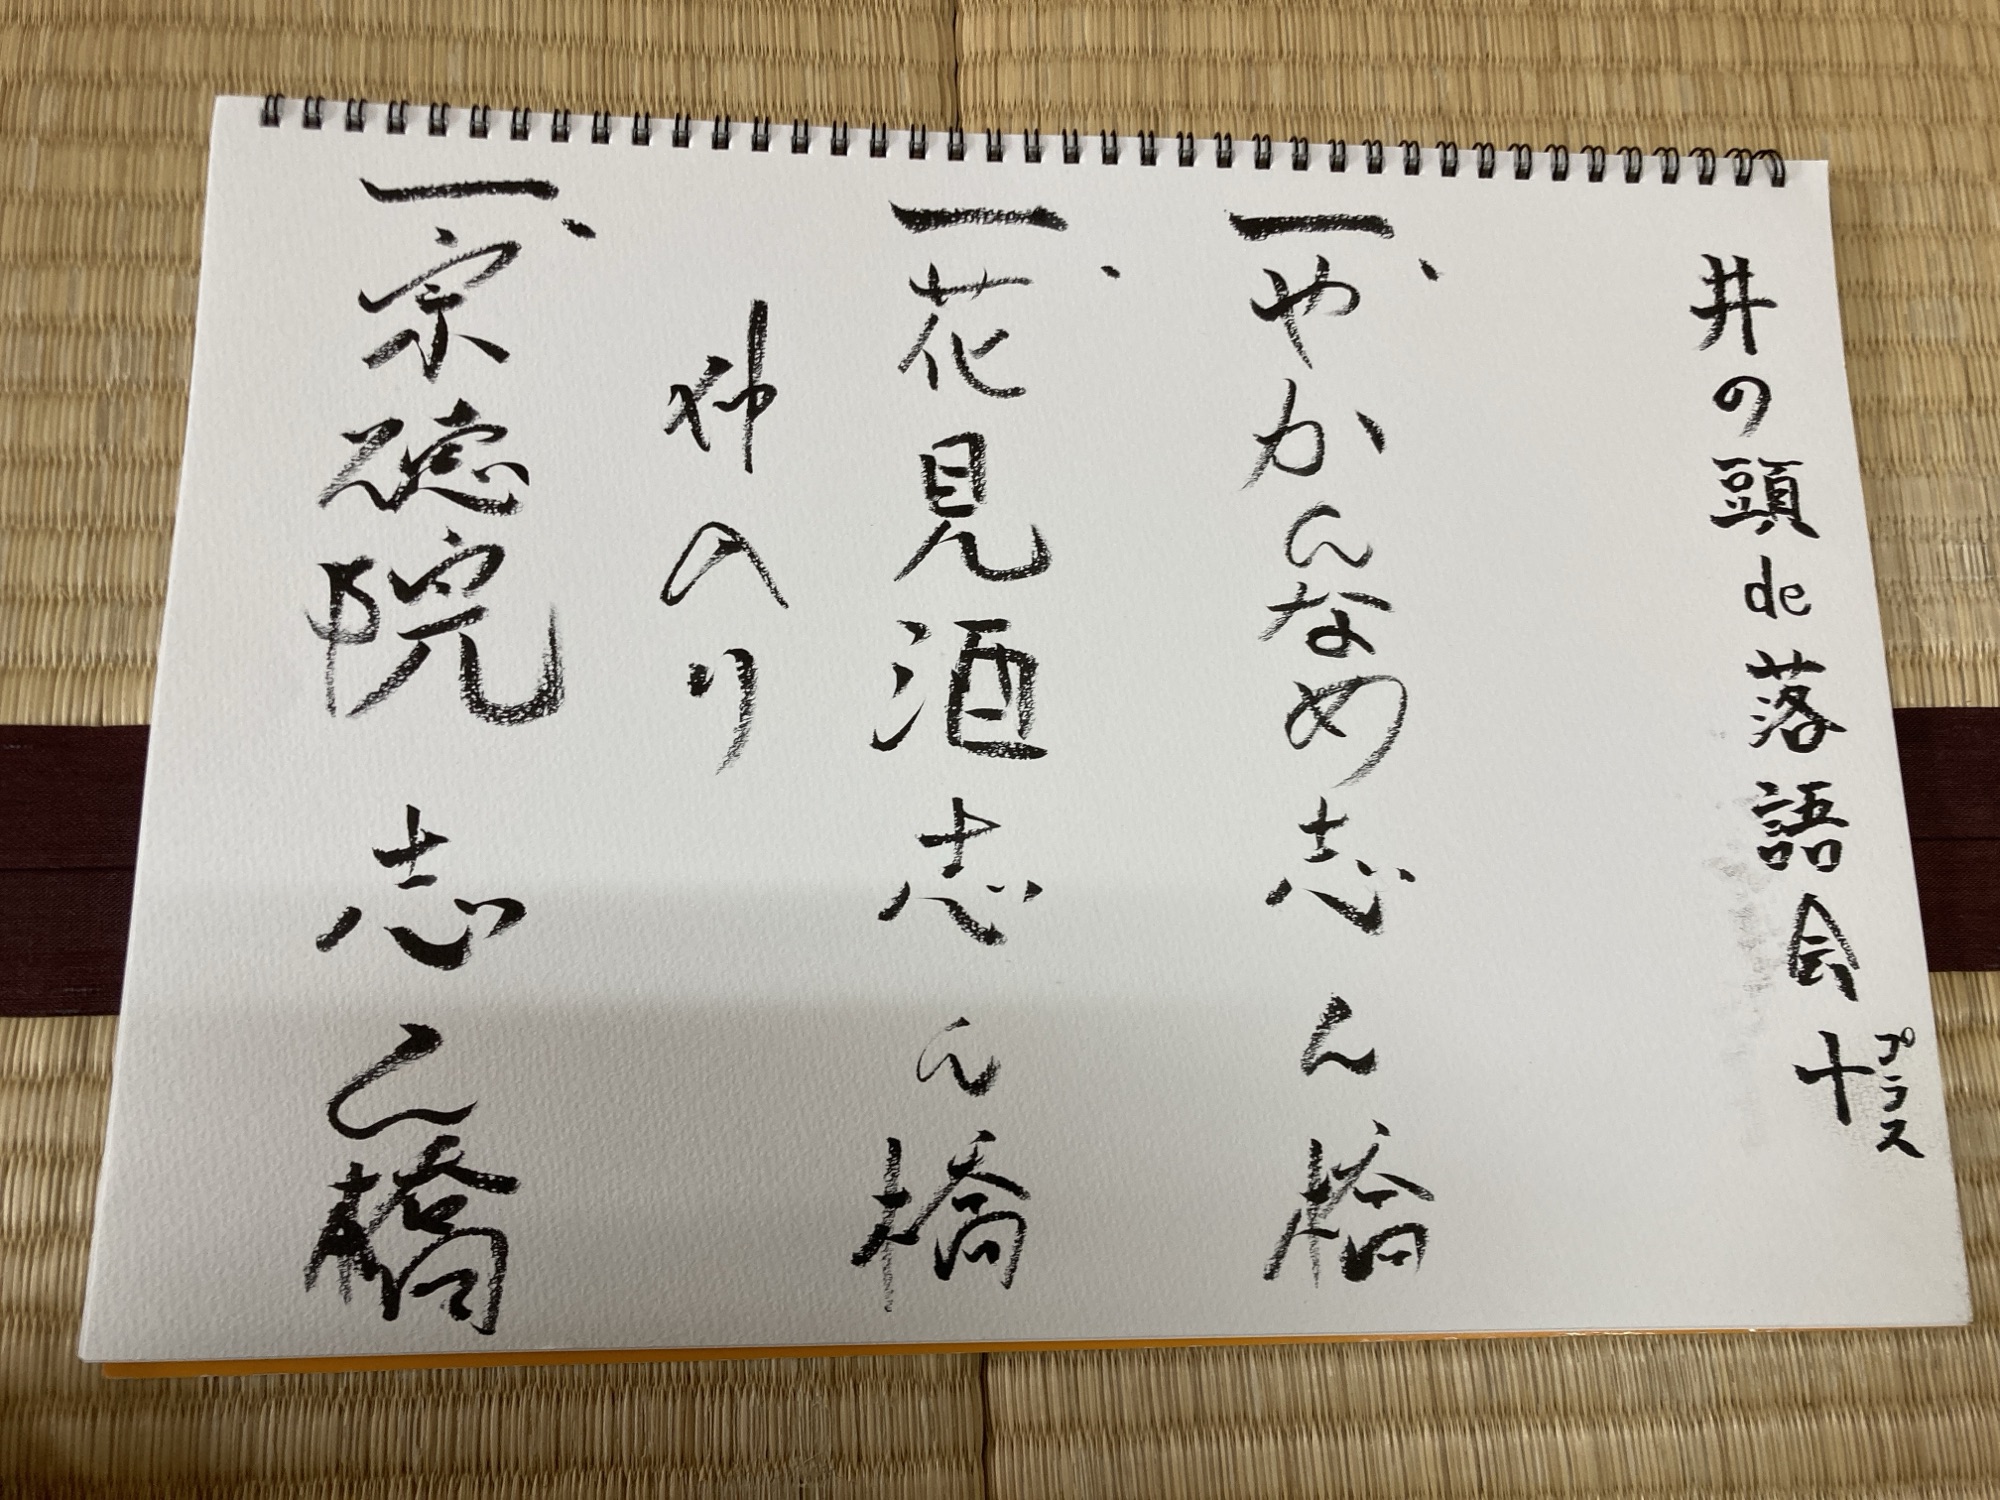 井の頭de落語会+
プラス
一、やかんなめ 志ん橋
一、花見酒 志ん橋
仲入り
一、宗徳院 志ん橋